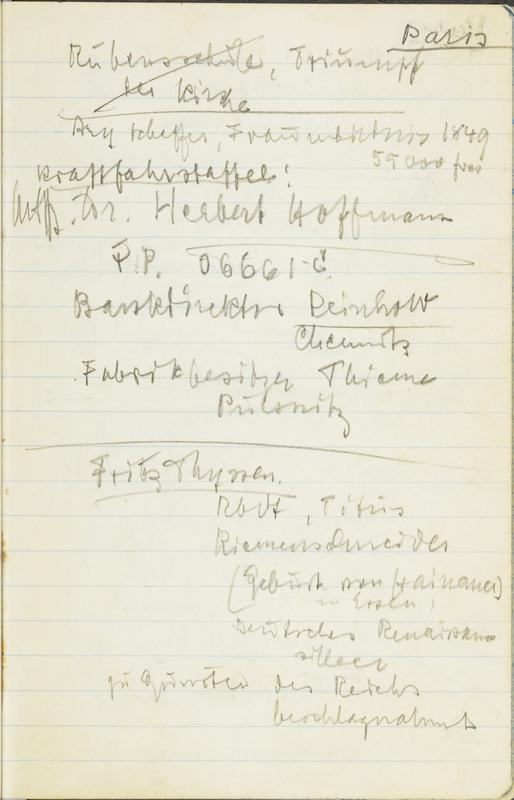 Paris
Rubensschule, Triumpf
der Kirche
Ary Scheffer, Frauenbildnis 1849
55 000 frcs
Kraftfahrstaffel!
Uffz. Dr. Herbert Hoffmann
F.P. 06661 C
Bankdirektor Reinhold
Chemnitz
Fabrikbesitzer Thieme
Pulsnitz
Fritz Thyssen.
Rbdt, Titus
Riemenschneider
(Geburt von
in Essen)
Deutsches Renaissance
silber
zu Gunsten des Reichs
beschlagnahmt